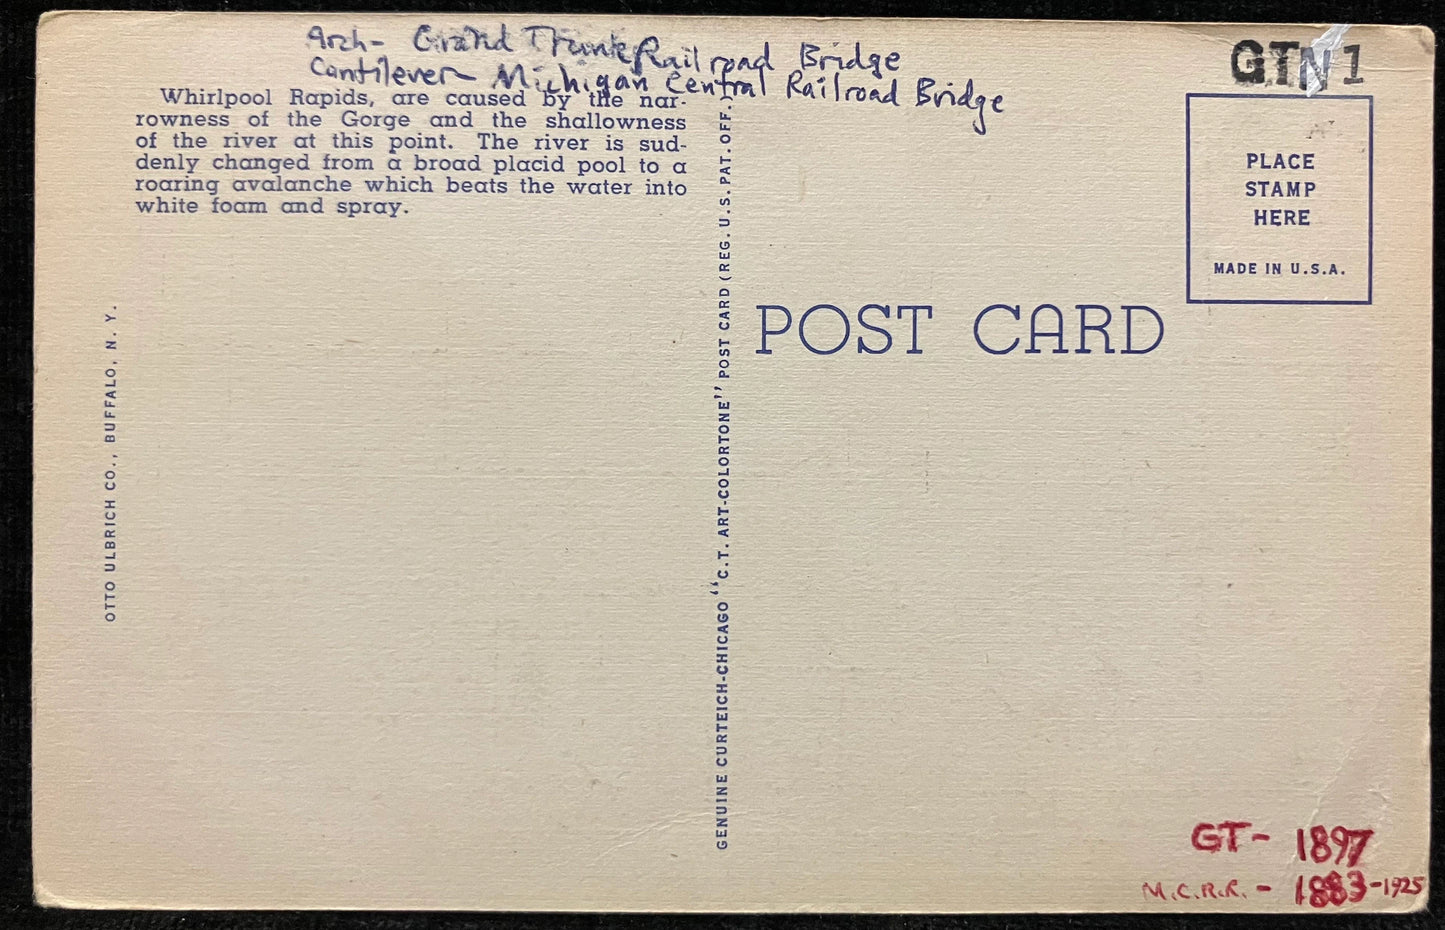 Arch- Grand Trunk Railroad Bridge
Cantilever- Michigan Central Railroad Bridge
GTN1
Whirlpool Rapids, are caused by the nar-
rowness of the Gorge and the shallowness
of the river at this point. The river is sud-
denly changed from a broad placid pool to a
roaring avalanche which beats the water into
white foam and spray.
OTTO ULBRICH CO., BUFFALO, N. Y.
GENUINE CURTEICH-CHICAGO "C.T. ART-COLORTONE" POST CARD (REG. U.S. PAT. OFF.)
PLACE
STAMP
HERE
MADE IN U.S.A.
POST CARD
GT- 1897
M.C.R.R. - 1883-1925